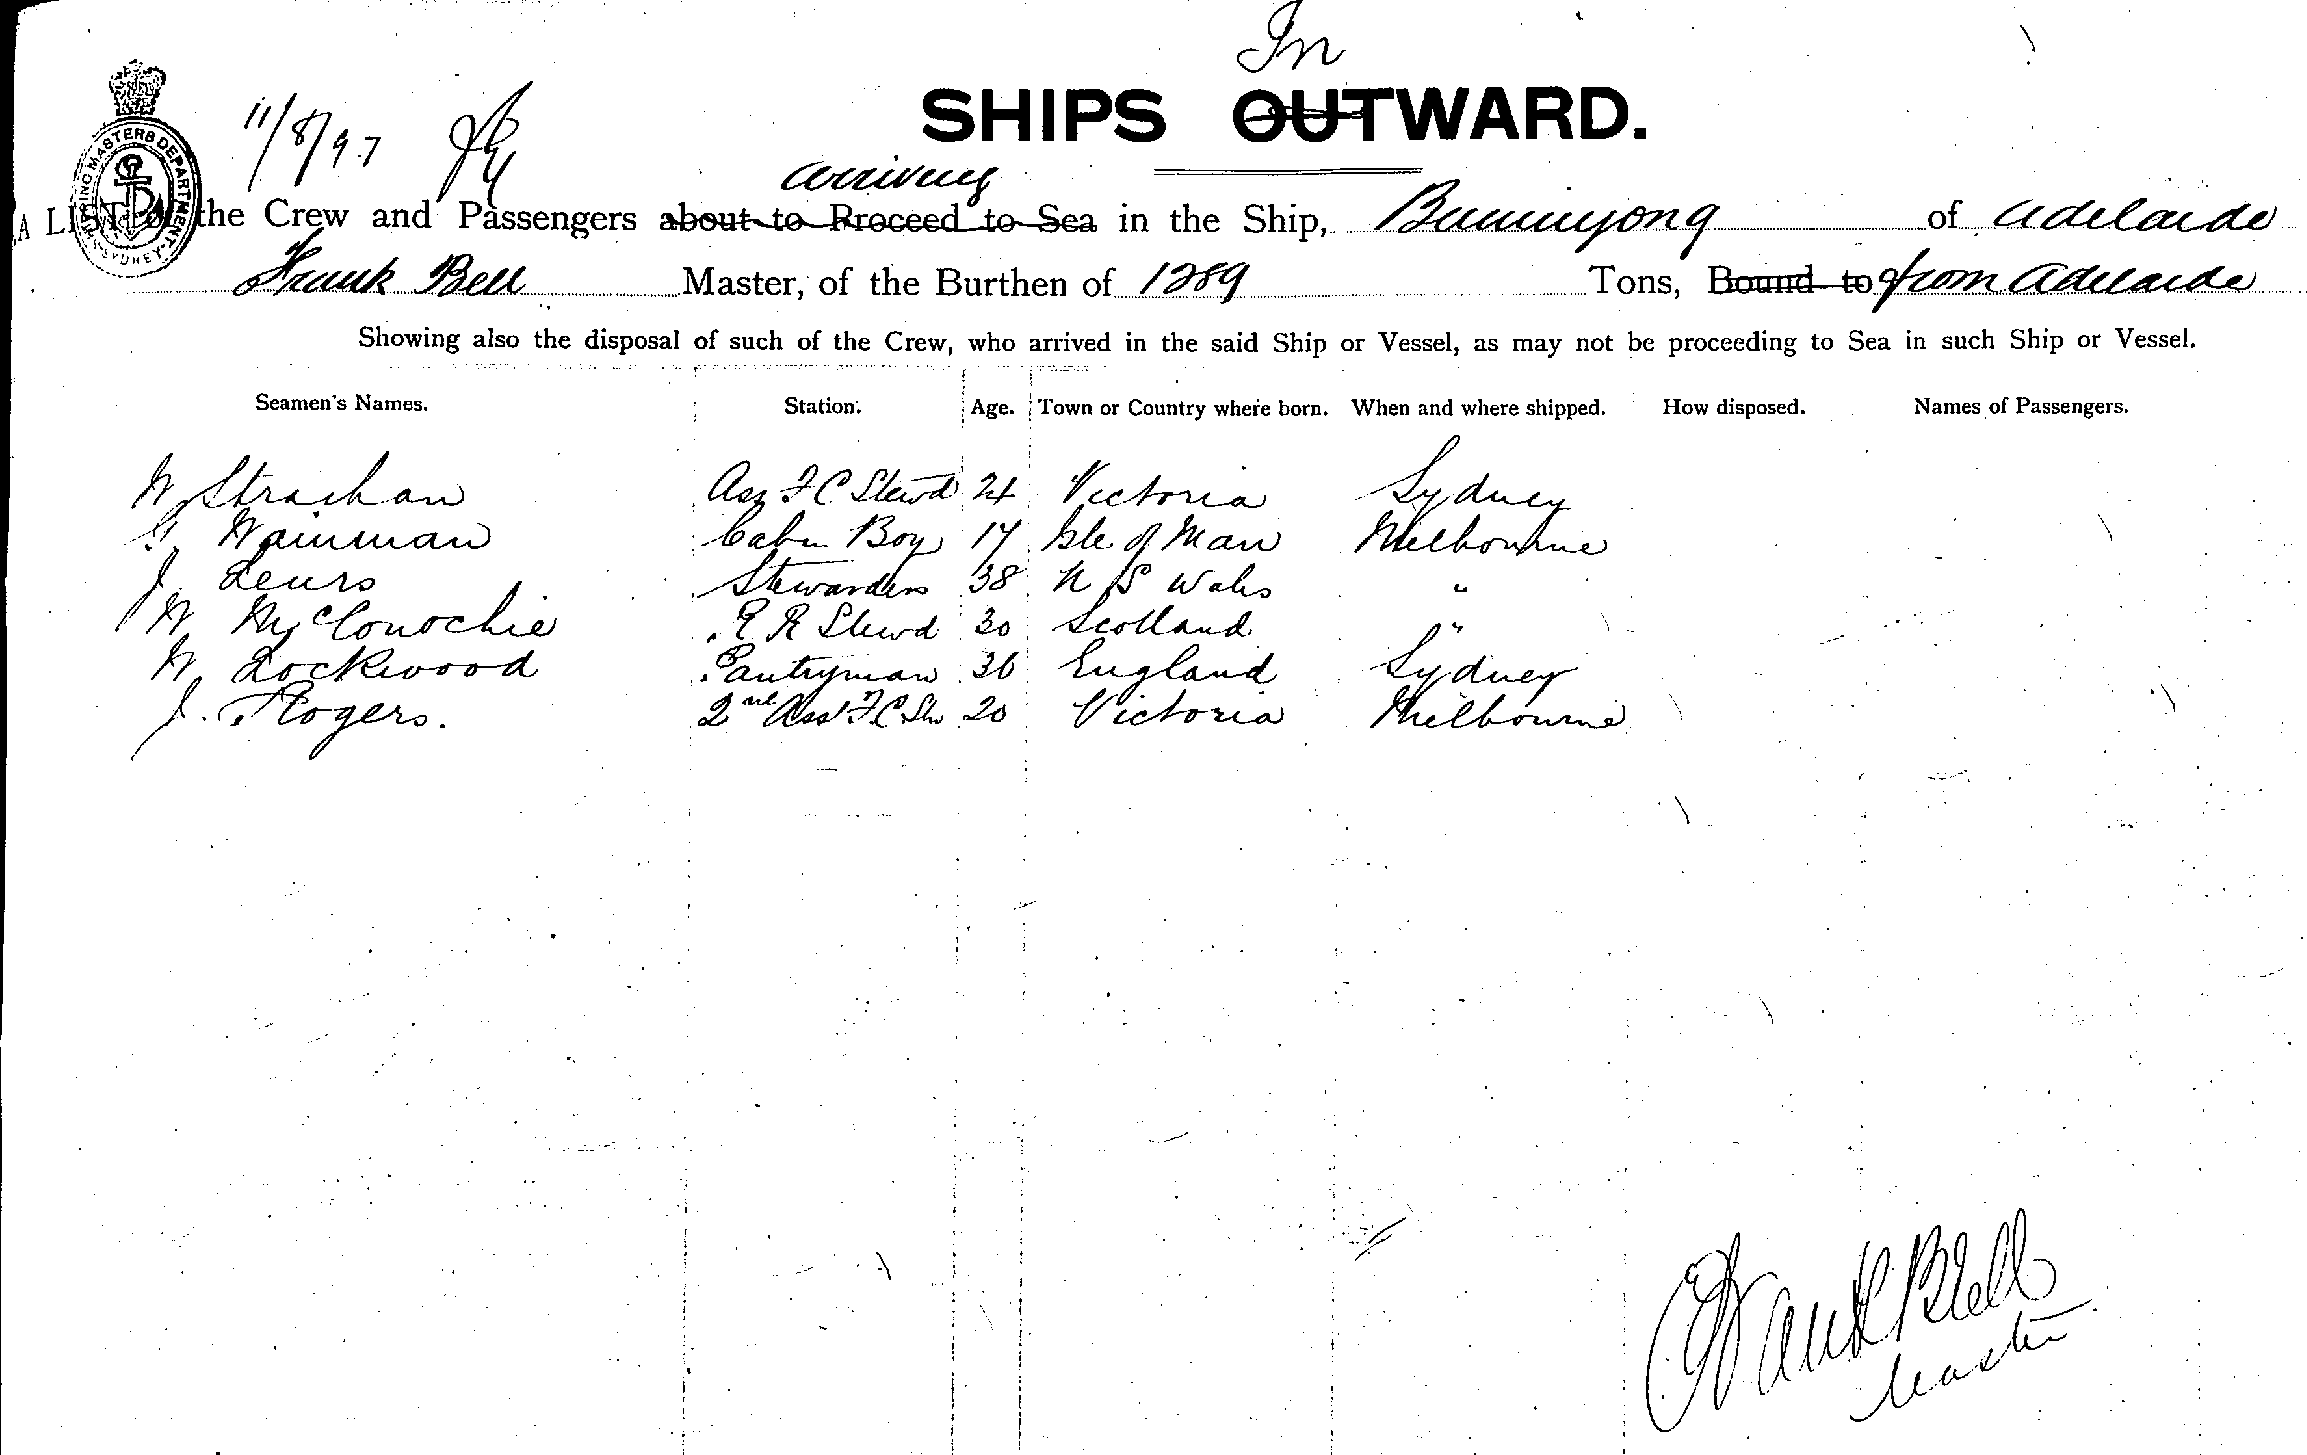 In
SHIPS OUTWARD.
11/8/97
arriving
A LIST of the Crew and Passengers about to Proceed to Sea in the Ship, Buninyong of Adelaide
Frank Bell Master, of the Burthen of 1289 Tons, Bound to from Adelaide
Showing also the disposal of such of the Crew, who arrived in the said Ship or Vessel, as may not be proceeding to Sea in such Ship or Vessel.
Seamen's Names. Station. Age. Town or Country where born. When and where shipped. How disposed. Names of Passengers.
W Strachan Ass F C Stewd 24 Victoria Sydney
G Wainman Cabin Boy 17 Isle of Man Melbourne
J Leurs Stewardess 38 N S Wales "
W McConochie E R Stewd 30 Scotland "
W Lockwood Pantryman 36 England Sydney
J. Rogers. 2nd Ass F C Stw 20 Victoria Melbourne
Frank Bell
Master
SHIPPING MASTERS DEPARTMENT. SYDNEY